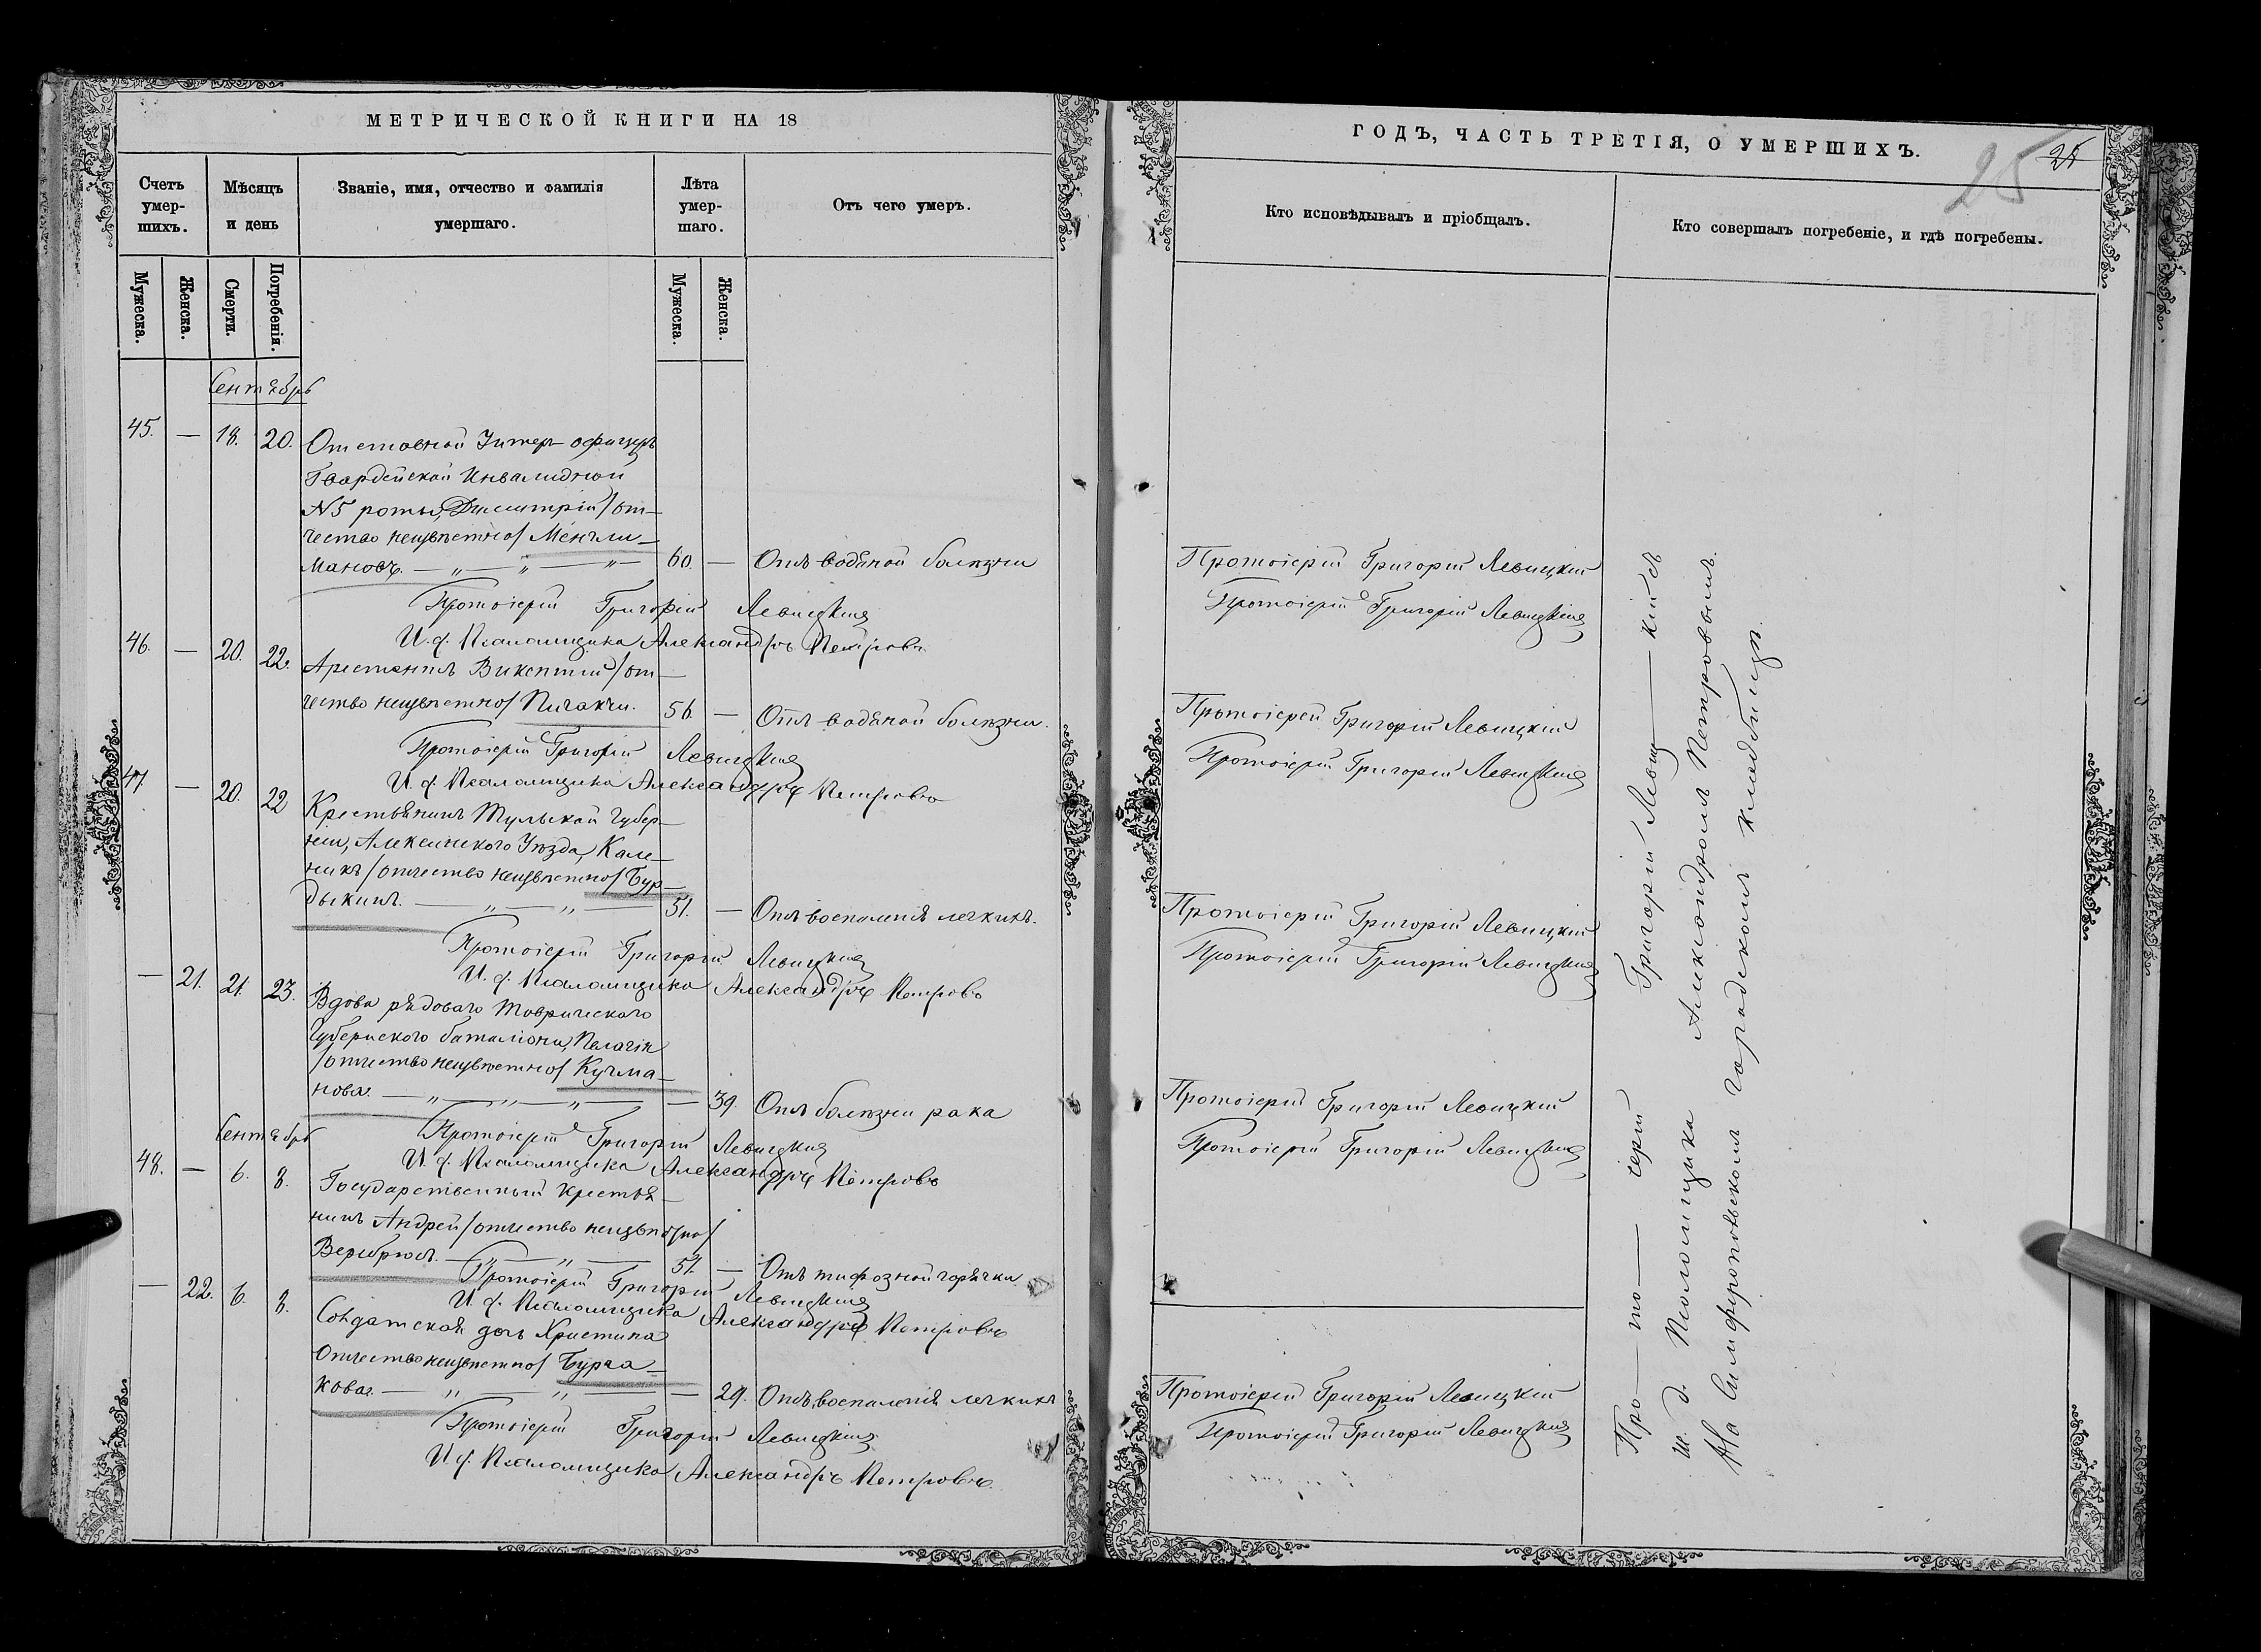 МЕТРИЧЕСКОЙ КНИГИ НА 18
Счетъ умер-шихъ.
Мѣсяцъ и день
Званіе, имя, отчество и фамилія умершаго.
Лѣта умер-шаго.
Отъ чего умеръ.
Мужеска.
Женска.
Смерти.
Погребенія.
Мужеска.
Женска.
Сентябрь
45. — 18. 20. Отставной Унтер-офицеръ
Гвардейской Инвалидной
№5 роты, Димитрій /от-
чество неизвѣстно/ Менгли-
мановъ. — „ — „ — „ — 60. — Отъ водяной болѣзни
Протоіерей Григорій Левицкій
И. д. Псаломщика Александръ Петровъ
46. — 20. 22. Арестантъ Викентій /от-
чество неизвѣстно/ Пичакчи. 56. — Отъ водяной болѣзни.
Протоіерей Григорій Левицкій
И. д. Псаломщика Александръ Петровъ
47. — 20. 22 Крестьянинъ Тульской Губер-
ніи, Алексинскаго Уѣзда, Кале-
никъ /отчество неизвѣстно/ Бур-
дыкинъ. — „ — „ — 51. — Отъ воспаленія легкихъ.
Протоіерей Григорій Левицкій
И. д. Псаломщика Александръ Петровъ
— 21. 21. 23. Вдова рядоваго Таврическаго
Губернскаго баталіона, Пелагія
/отчество неизвѣстно/ Кучма-
нова. — „ — „ — „ — — 39. Отъ болѣзни рака
Протоіерей Григорій Левицкій
И. д. Псаломщика Александръ Петровъ
Сентябрь
48. — 6. 8. Государственный крестья-
нинъ Андрей /отчество неизвѣстно/
Вербрюсъ. — „ — „ — 51. — Отъ тифозной горячки.
Протоіерей Григорій Левицкій
И. д. Псаломщика Александръ Петровъ
— 22. 6. 8. Солдатская дочь Христина
Отчество неизвѣстно/ Бурла-
кова. — „ — „ — — 29. Отъ воспаленія легкихъ
Протоіерей Григорій Левицкій
И. д. Псаломщика Александръ Петровъ.
ГОДЪ, ЧАСТЬ ТРЕТІЯ, О УМЕРШИХЪ.
25
25
Кто исповѣдывалъ и пріобщалъ.
Кто совершалъ погребеніе, и гдѣ погребены.
Протоіерей Григорій Левицкій
Протоіерей Григорій Левицкій
Протоіерей Григорій Левицкій
Протоіерей Григорій Левицкій
Протоіерей Григорій Левицкій
Протоіерей Григорій Левицкій
Протоіерей Григорій Левицкій
Протоіерей Григорій Левицкій
Протоіерей Григорій Левицкій
Протоіерей Григорій Левицкій
Про — то — іерей Григорій Левиц — кій съ
и. д. Псаломщика Александромъ Петровымъ.
На Симферопольскомъ городскомъ кладбищѣ.